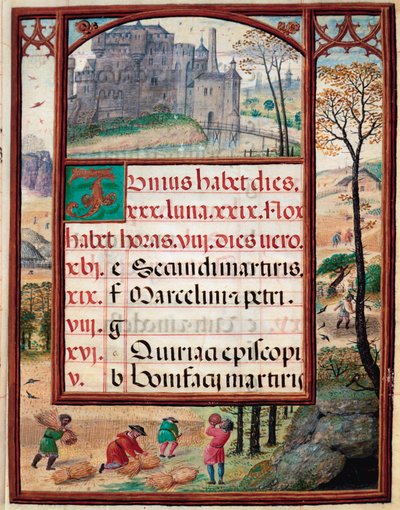 IVnius habet dies.
xxx. luna. xxix. Nox
habet horas. viij. dies uero.
xvj. e Secundi martiris.
xix. f Marcelini & petri.
viij. g
xvj. Quiriaci episcopi
v. b Bonifacij martiris